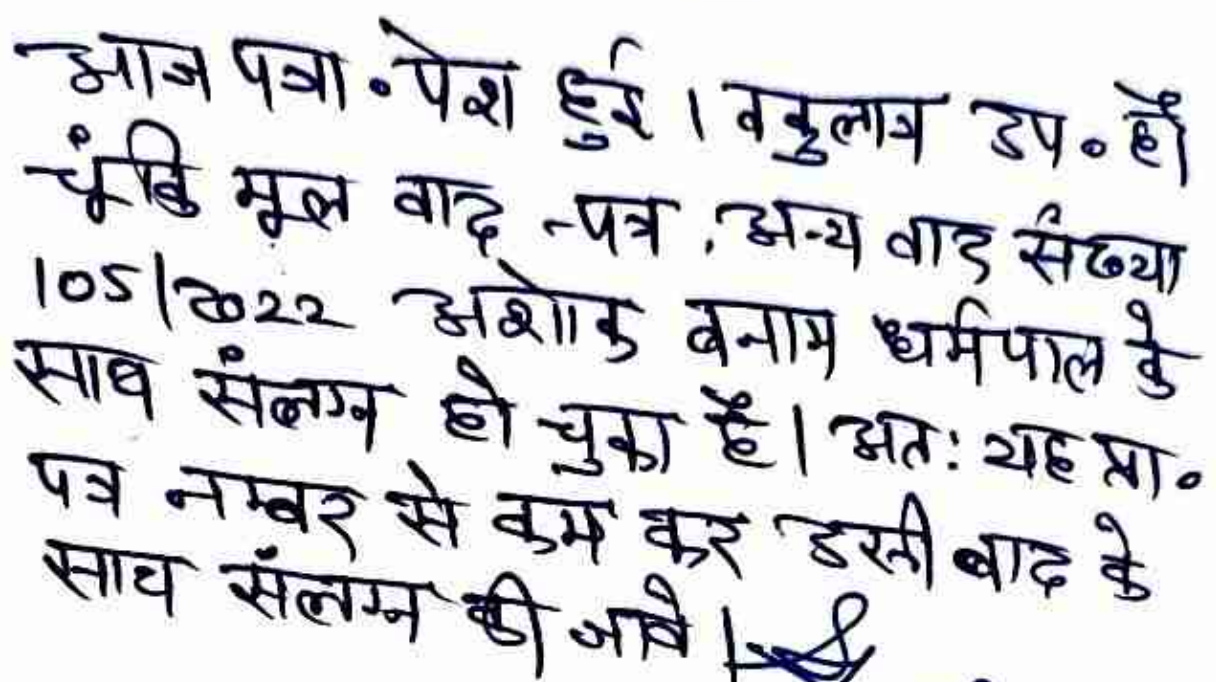 आज पत्रा॰ पेश हुई । वकुलाय उप॰ है।
चूंकि मूल वाद -पत्र, अन्य वाद संख्या
105/2022 अशोक बनाम धर्मपाल के
साथ संलग्न हो चुका है। अतः यह प्रा॰
पत्र नम्बर से कम कर उसी वाद के
साथ संलग्न की जावे ।